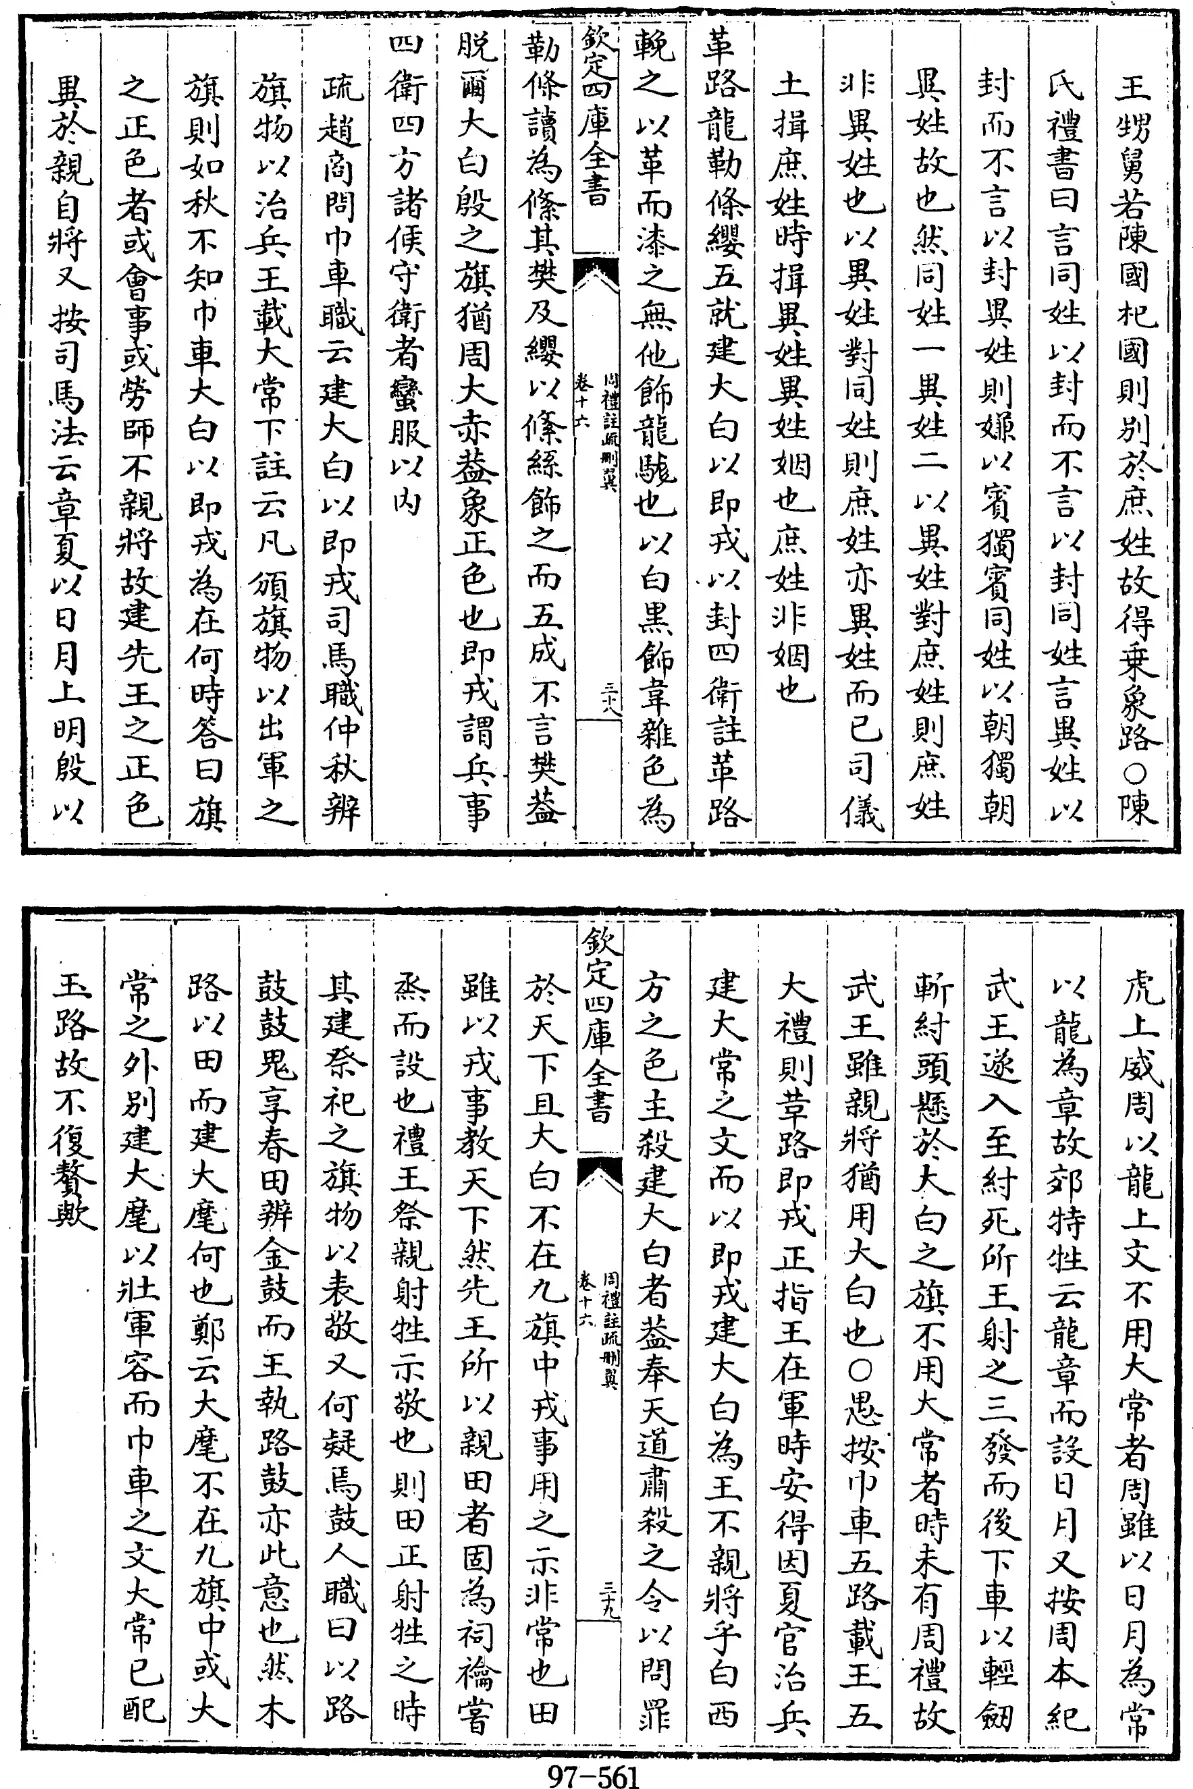 王甥舅若陳國杞國則别於庶姓故得乗象路○陳
氏禮書曰言同姓以封而不言以封同姓言異姓以
封而不言以封異姓則嫌以賓獨賓同姓以朝獨朝
異姓故也然同姓一異姓二以異姓對庶姓則庶姓
非異姓也以異姓對同姓則庶姓亦異姓而已司儀
土揖庶姓時揖異姓異姓姻也庶姓非姻也
革路龍勒條纓五就建大白以即戎以封四衛註革路
輓之以革而漆之無他飾龍駹也以白黒飾韋雜色為
欽定四庫全書
周禮註疏刪翼
卷十六
三十八
勒條讀為絛其樊及纓以絛絲飾之而五成不言樊葢
脱爾大白殷之旗猶周大赤葢象正色也即戎謂兵事
四衛四方諸侯守衛者蠻服以内
疏趙商問巾車職云建大白以即戎司馬職仲秋辨
旗物以治兵王載大常下註云凡頒旗物以出軍之
旗則如秋不知巾車大白以即戎為在何時答曰旗
之正色者或會事或勞師不親將故建先王之正色
異於親自將又按司馬法云章夏以日月上明殷以
虎上威周以龍上文不用大常者周雖以日月為常
以龍為章故郊特牲云龍章而設日月又按周本紀
武王遂入至紂死所王射之三發而後下車以輕劔
斬紂頭懸於大白之旗不用大常者時未有周禮故
武王雖親將猶用大白也○愚按巾車五路載王五
大禮則革路即戎正指王在軍時安得因夏官治兵
建大常之文而以即戎建大白為王不親將乎白西
方之色主殺建大白者葢奉天道肅殺之令以問罪
欽定四庫全書
周禮註疏刪翼
卷十六
三十九
於天下且大白不在九旗中戎事用之示非常也田
雖以戎事教天下然先王所以親田者固為祠禴嘗
烝而設也禮王祭親射牲示敬也則田正射牲之時
其建祭祀之旗物以表敬又何疑焉鼓人職曰以路
鼓鼓鬼享春田辨金鼓而王執路鼓亦此意也然木
路以田而建大麾何也鄭云大麾不在九旗中或大
常之外别建大麾以壯軍容而巾車之文大常已配
玉路故不復贅歟
97-561